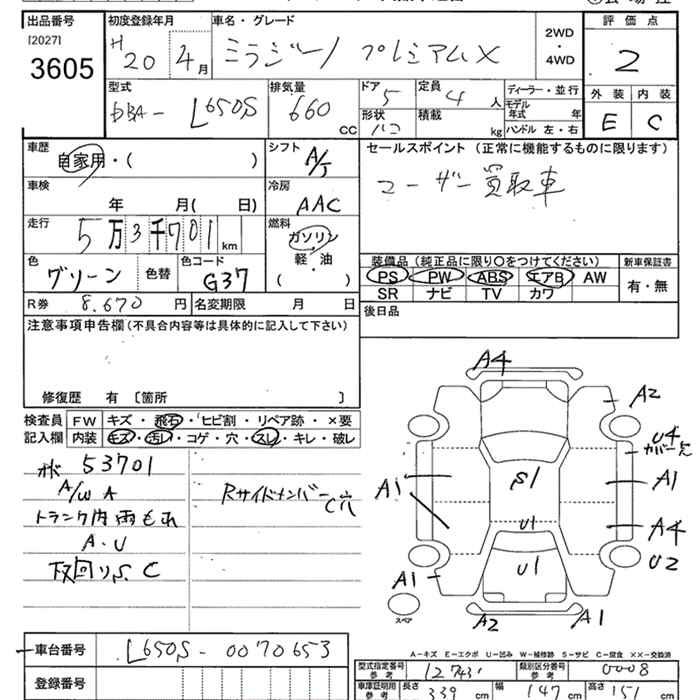 出品番号 初度登録年月 車名・グレード 評価点
[2027] H 20 4月 ミラジーノ プレミアムX 2WD・4WD 2
3605
型式 排気量 ドア 定員 ディーラー・並行 外装 内装
DBA- L650S 660 CC 5 4人 モデル年式 年式 E C
形状 ハコ 積載 kg ハンドル 左・右
車歴 シフト セールスポイント (正常に機能するものに限ります)
自家用・( ) A/T ユーザー買取車
車検 冷房
年 月( 日) AAC
走行 燃料
5万3千701km ガソリン
軽・油
( )
装備品(純正品に限り〇をつけてください) 新車保証書
色 色替 色コード PS PW ABS エアB AW 有・無
グリーン G37 SR ナビ TV カワ
R券 8.670円 名変期限 月 日 後日品
注意事項申告欄(不具合内容等は具体的に記入して下さい)
修復歴 有 〔箇所 〕
検査員 FW キズ・飛石・ヒビ割・リペア跡・×要
記入欄 内装 キズ・汚レ・コゲ・穴・スレ・キレ・破レ
53701
A/W A Rサイドメンバー C穴
トランク内雨もれ
A・U
下回りS.C
A4
A2
U4
A1 S1 A1
U1 A4
U1 U2
A1
A2 A1
スペア
A-キズ E-エクボ U-凹み W-補修跡 S-サビ C-腐食 ××-交換済
車台番号 L650S-0070653
型式指定番号 参考 12743 類別区分番号 参考 0008
登録番号 車庫証明用 参考 長さ 339cm 幅 147cm 高さ 151cm